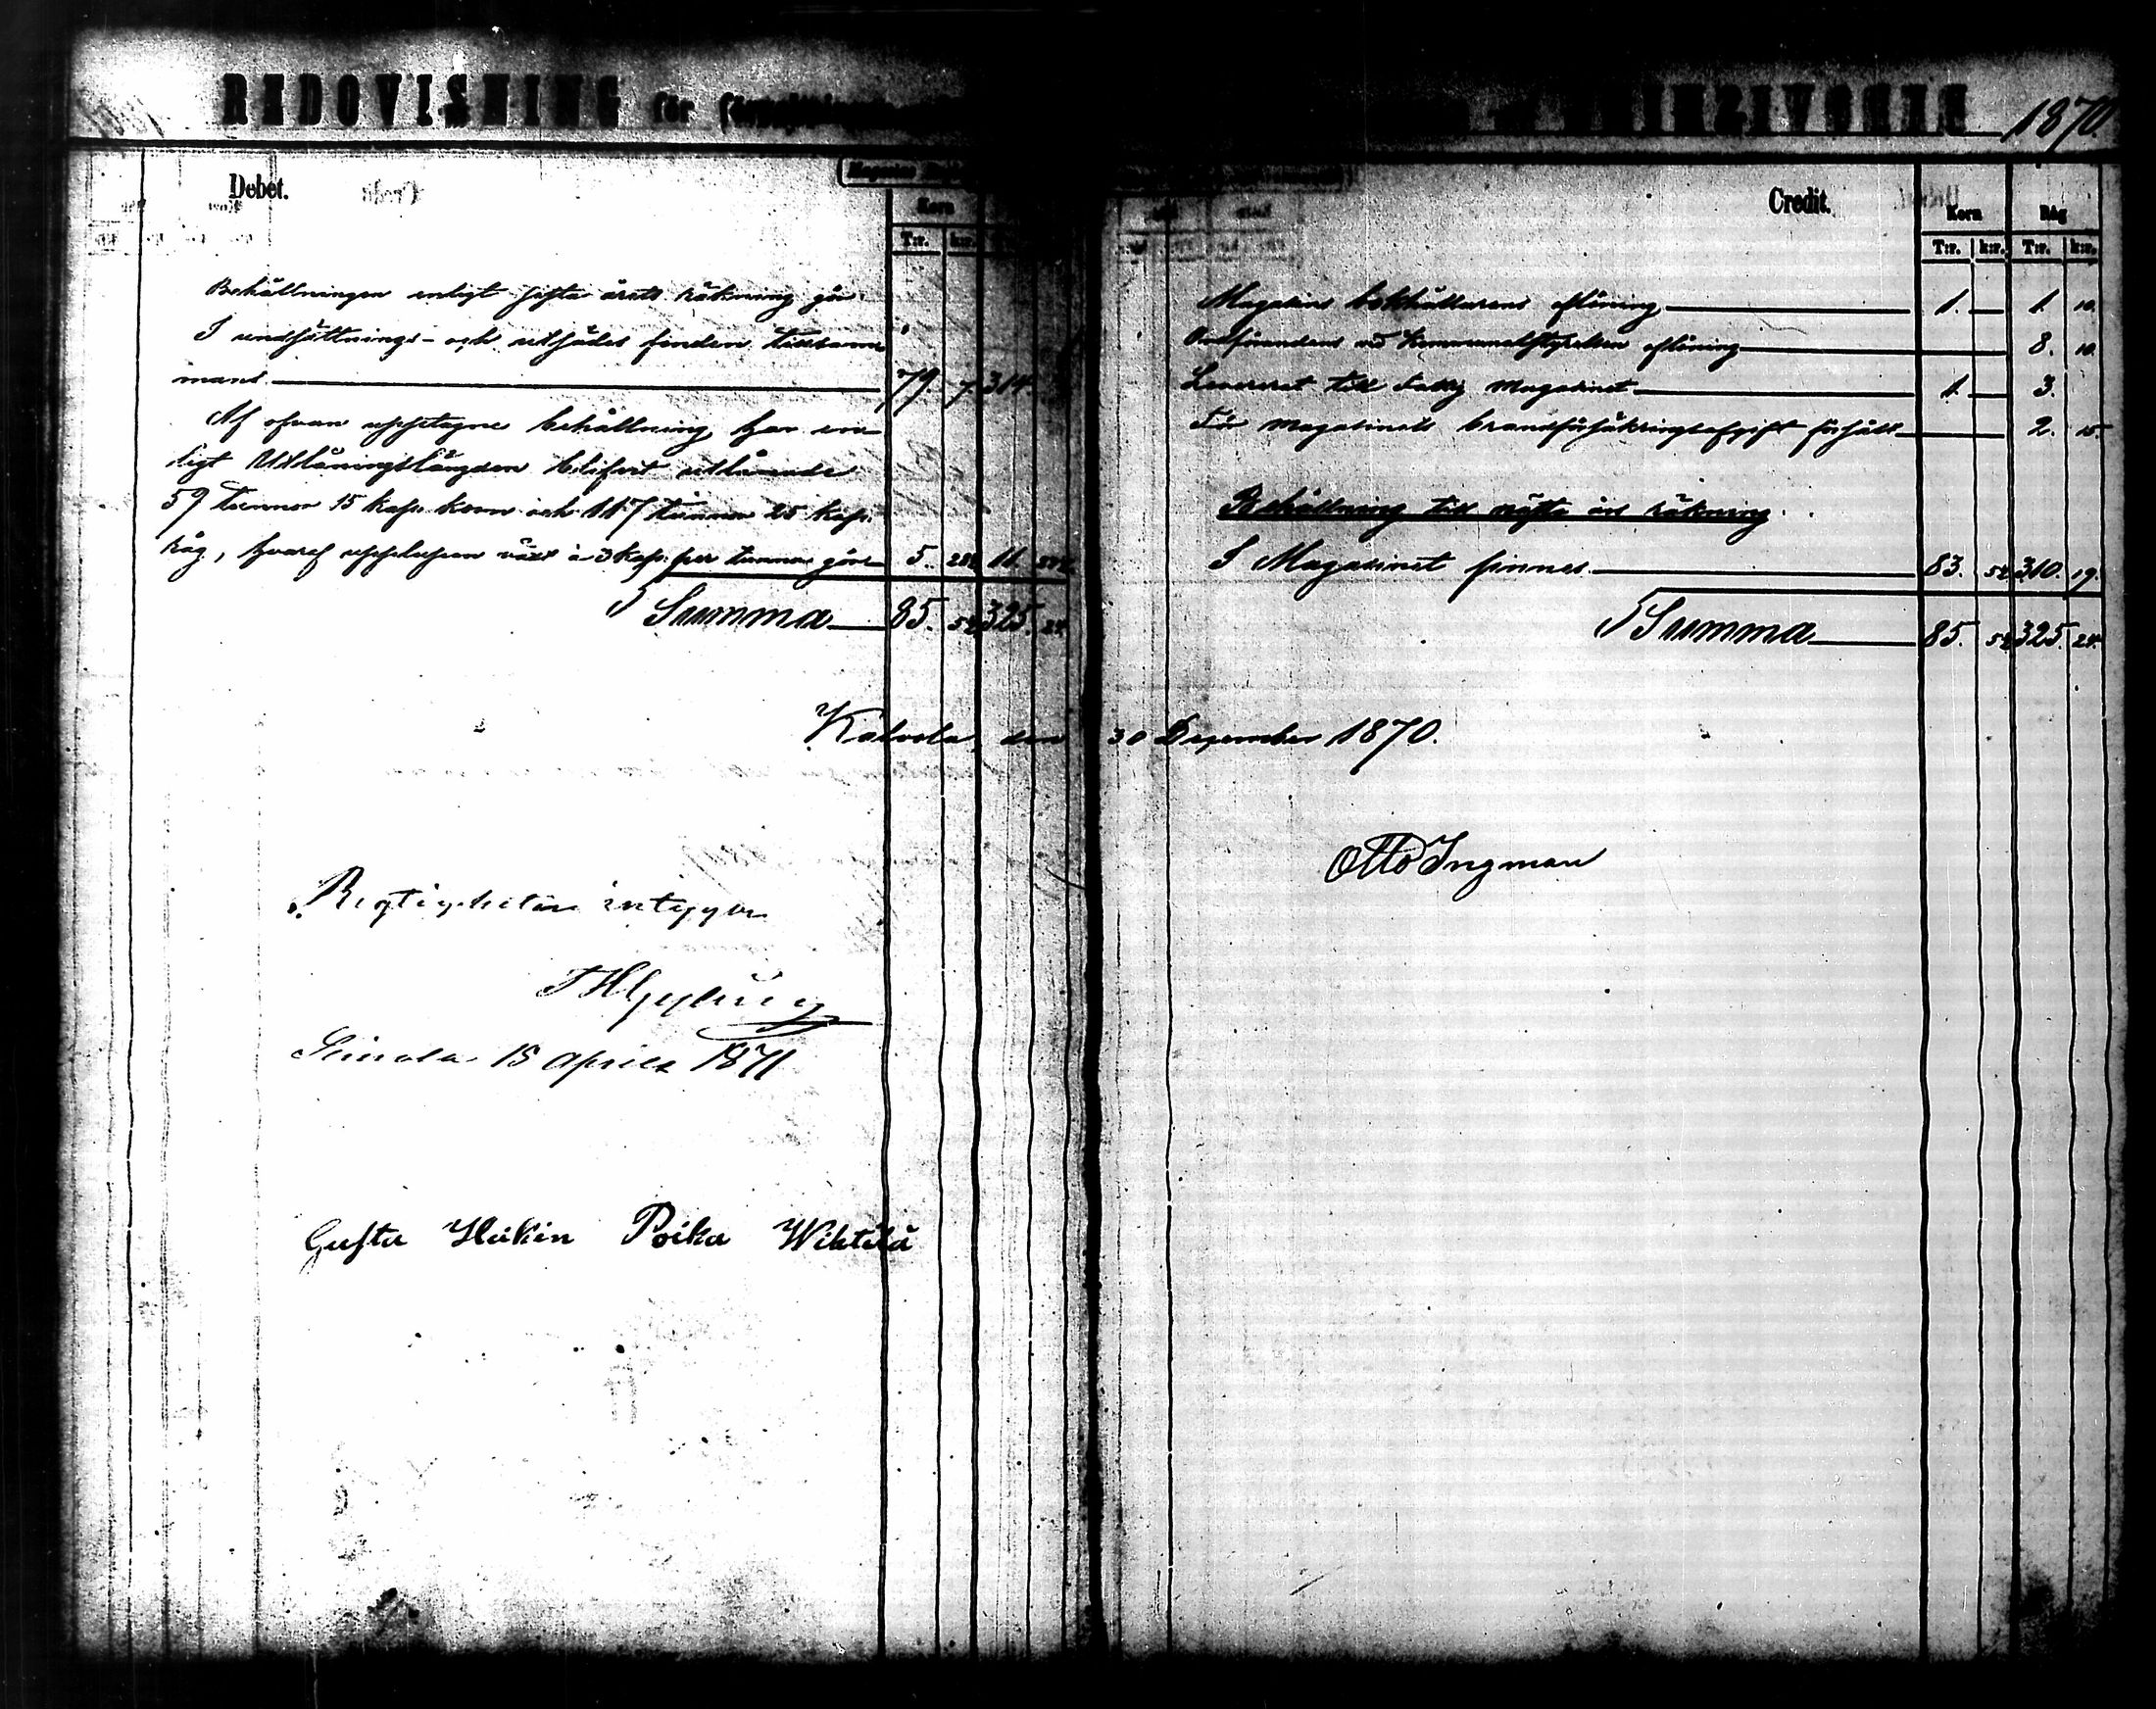 REDOVISNING för
1870
Debet.
Korn
T:r. k:r.
Behållningen enligt sista årets räkning gör
I undsättnings- och utsädes fonden tillsam-
mans 79. 7. 314.
Af ofvan upptagne behållning har en-
ligt Utlåningslängden blifvit utlånade
59 tunnor 15 kap. korn och 117 tunnor 25 kap.
råg, hvaraf upplupen växt à 3 kap. per tunna gör 5. 11.
Summa 85. 5½ 325. 24.
Credit.
Korn Råg
T:r. k:r. T:r. k:r.
Magasins bokhållarens aflöning 1. — 1. 10.
Ordförandens vid Kommunalstyrelsen aflöning — 8. 10.
Levereret till Fattig Magasinet 1. — 3.
För magasinets brandförsäkringsafgift försåldt — 2. 15.
Behållning till nästa års räkning.
I Magasinet finnes 83. 5½ 310. 19.
Summa 85. 5½ 325. 24.
Kalvola, den 30 December 1870.
Otto Ingman
Rigtigheten intygar
15 April 1871
Gusta Heikin Poika Wihtilä